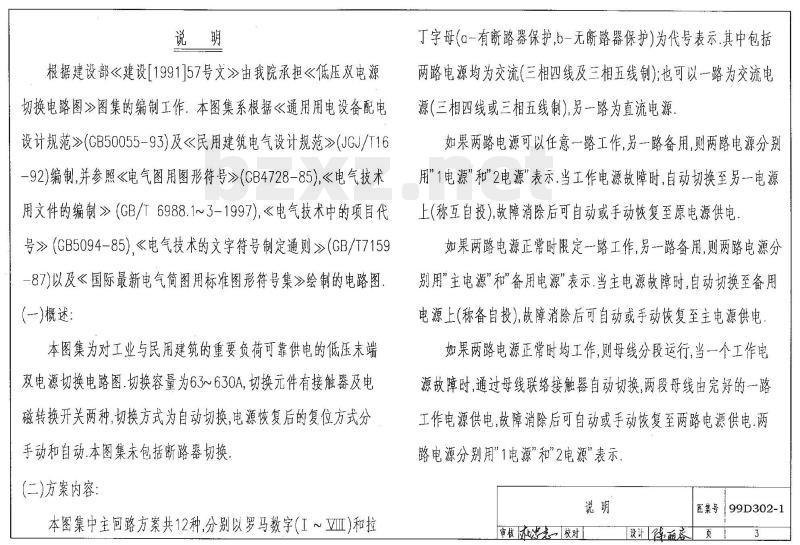 说 明
根据建设部≪建设[1991]57号文≫由我院承担≪低压双电源
切换电路图≫图集的编制工作. 本图集系根据≪通用用电设备配电
设计规范≫(GB50055-93)及≪民用建筑电气设计规范≫(JGJ/T16
-92)编制,并参照≪电气图用图形符号≫(GB4728-85),≪电气技术
用文件的编制≫(GB/T 6988.1~3-1997),≪电气技术中的项目代
号≫(GB5094-85),≪电气技术的文字符号制定通则≫(GB/T7159
-87)以及≪国际最新电气简图用标准图形符号集≫绘制的电路图.
(一)概述:
本图集为对工业与民用建筑的重要负荷可靠供电的低压末端
双电源切换电路图.切换容量为63~630A,切换元件有接触器及电
磁转换开关两种,切换方式为自动切换,电源恢复后的复位方式分
手动和自动.本图集未包括断路器切换.
(二)方案内容:
本图集中主回路方案共12种,分别以罗马数字(I ~ VIII)和拉
丁字母(a-有断路器保护,b-无断路器保护)为代号表示.其中包括
两路电源均为交流(三相四线及三相五线制);也可以一路为交流电
源(三相四线或三相五线制),另一路为直流电源.
如果两路电源可以任意一路工作,另一路备用,则两路电源分别
用"1电源"和"2电源"表示.当工作电源故障时,自动切换至另一电源
上(称互自投),故障消除后可自动或手动恢复至原电源供电.
如果两路电源正常时限定一路工作,另一路备用,则两路电源分
别用"主电源"和"备用电源"表示.当主电源故障时,自动切换至备用
电源上(称备自投),故障消除后可自动或手动恢复至主电源供电.
如果两路电源正常时均工作,则母线分段运行,当一个工作电
源故障时,通过母线联络接触器自动切换,两段母线由完好的一路
工作电源供电,故障消除后可自动或手动恢复至两路电源供电.两
路电源分别用"1电源"和"2电源"表示.
bzxz.net
说 明 图集号 99D302-1
审核 校对 设计 页 3